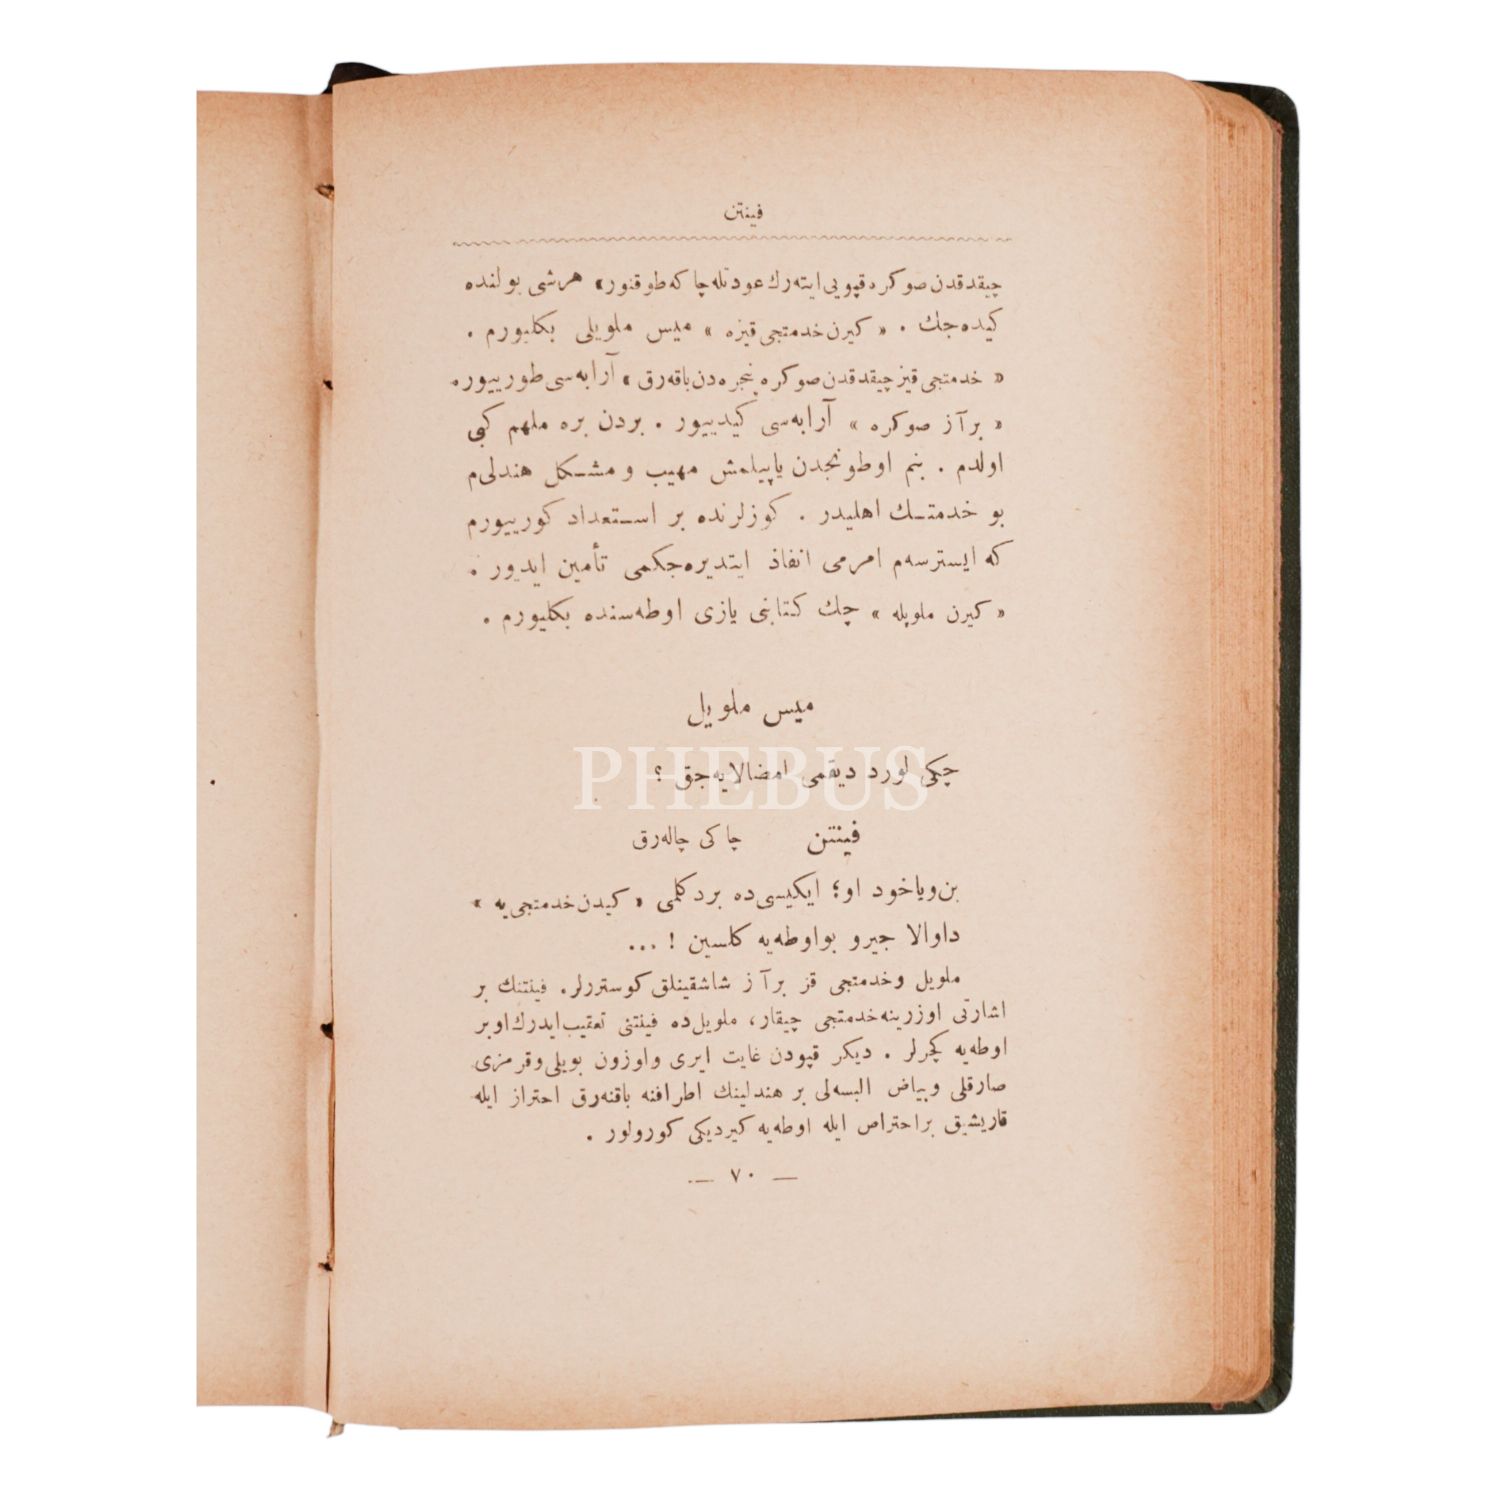 فینتن
چیقدقدن صوكره قپویی ایتەرك عودتله چاكه طوقنور» هر شی یولنده
كیده‌جك . « كیرن خدمتجی قیزه » میس ملویلی بكلیورم .
« خدمتجی قیز چیقدقدن صوكره پنجره‌دن باقەرق » آرابەسی طورییور.
« بر آز صوكره » آرابەسی كیدییور . بردن بره ملهم كبی
اولدم . بنم اوطونجدن یاپیلمش مهیب و مشـكل هندلی‌م
بو خدمتـك اهلیدر . كوزلرنده بر استعداد كورییورم
كه ایسترسەم امرمی انفاذ ایتدیره‌جكمی تأمین ایدیور .
« كیرن ملویله » چك كتابنی یازی اوطەسنده بكلیورم .
میس ملویل
چكی لورد دیقمی امضالایەجق ؟
فینتن چاكی چالەرق
بن ویاخود او؛ ایكیسی‌ده بردكلمی « كیدن خدمتجی‌یه »
داوالا جیرو بواوطەیه كلسین ! ...
ملویل وخدمتجی قز بر آز شاشقینلق كوستررلر. فینتنك بر
اشارتی اوزرینه خدمتجی چیقار، ملویل‌ده فینتنی تعقیب ایدرك اوبر
اوطەیه كچرلر . دیكر قپودن غایت ایری واوزون بویلی وقرمزی
صارقلی وبیاض البسەلی بر هندلینك اطرافنه باقنەرق احتراز ایله
قاریشیق بر احتراص ایله اوطەیه كیردیكی كورولور .
— ٧٠ —
PHEBUS